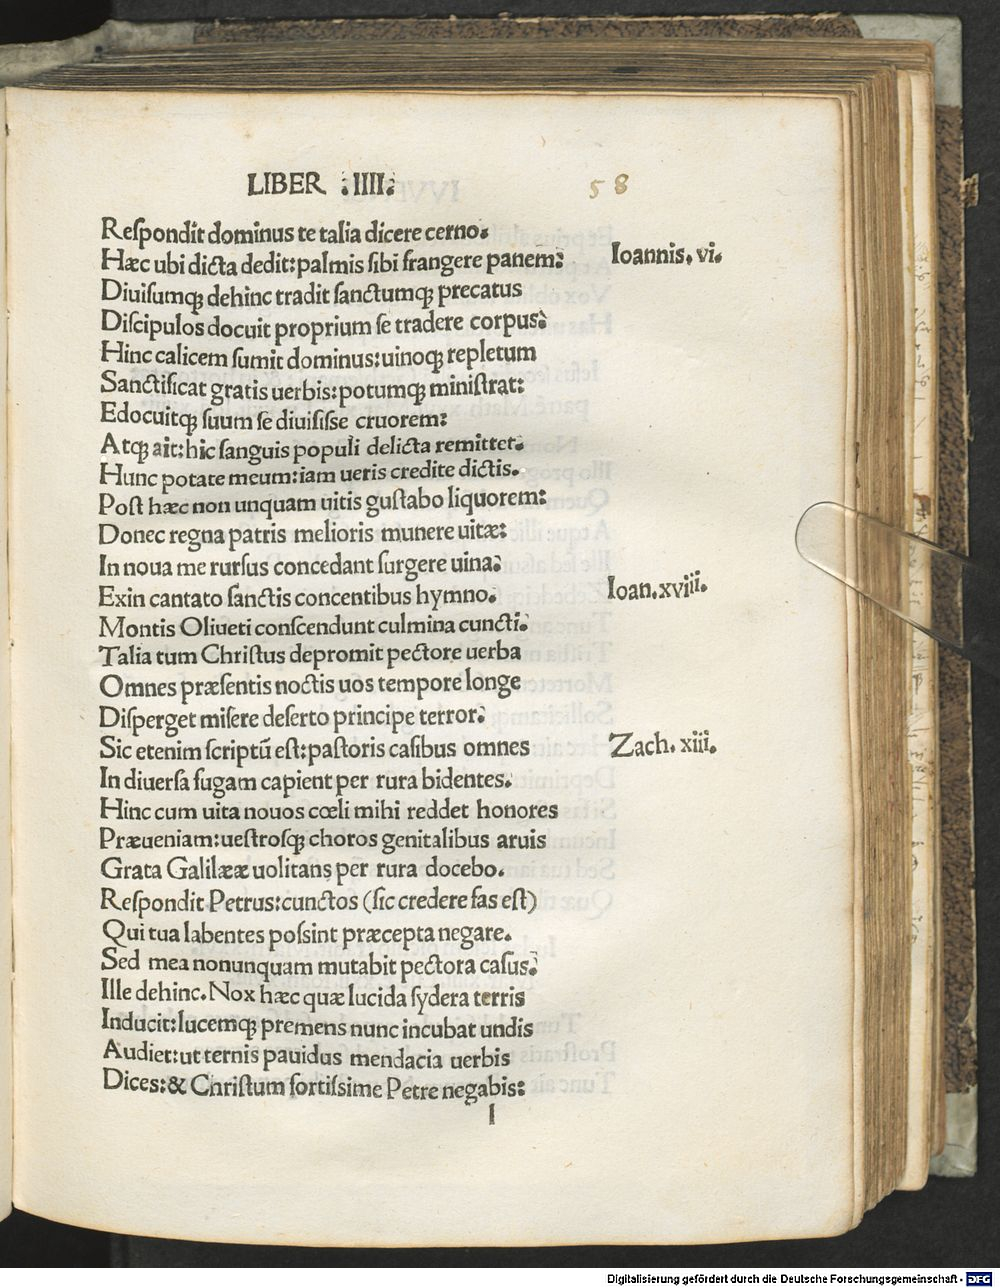 LIBER .IIII.
58
Reſpondit dominus te talia dicere cerno.
Hæc ubi dicta dedit:palmis ſibi frangere panem:
Ioannis. vi.
Diuiſumꝗ dehinc tradit ſanctumꝗ precatus
Diſcipulos docuit proprium ſe tradere corpus.
Hinc calicem ſumit dominus:uinoꝗ repletum
Sanctificat gratis uerbis:potumꝗ miniſtrat:
Edocuitꝗ ſuum ſe diuiſiſſe cruorem:
Atꝗ ait:hic ſanguis populi delicta remittet.
Hunc potate meum:iam ueris credite dictis.
Poſt hæc non unquam uitis guſtabo liquorem:
Donec regna patris melioris munere uitæ:
In noua me rurſus concedant ſurgere uina.
Exin cantato ſanctis concentibus hymno.
Ioan.xviii.
Montis Oliueti conſcendunt culmina cuncti.
Talia tum Chriſtus depromit pectore uerba
Omnes præſentis noctis uos tempore longe
Diſperget miſere deſerto principe terror.
Sic etenim ſcriptū eſt:paſtoris caſibus omnes
Zach. xiii.
In diuerſa fugam capient per rura bidentes.
Hinc cum uita nouos cœli mihi reddet honores
Præueniam:ueſtroſꝗ choros genitalibus aruis
Grata Galilææ uolitans per rura docebo.
Reſpondit Petrus:cunctos (ſic credere fas eſt)
Qui tua labentes poſſint præcepta negare.
Sed mea nonunquam mutabit pectora caſus.
Ille dehinc.Nox hæc quæ lucida ſydera terris
Inducit:lucemꝗ premens nunc incubat undis
Audiet:ut ternis pauidus mendacia uerbis
Dices:& Chriſtum fortiſſime Petre negabis:
l
Digitalisierung gefördert durch die Deutsche Forschungsgemeinschaft - DFG